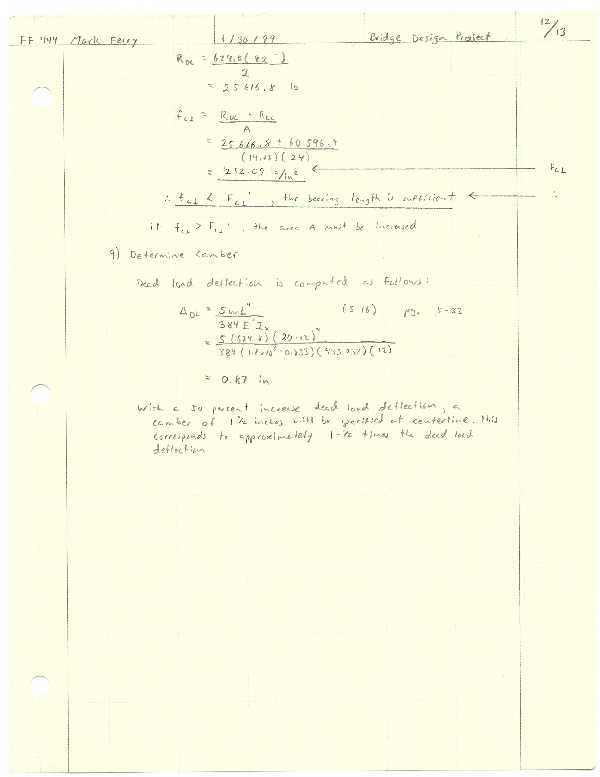 FF 444 Mark Ferry 1/30/99 Bridge Design Project 12/13
R_DL =
2
= 25616.8 lb
f_c⊥ = R_DL + R_LL
A
= 25616.8 + 60596.4
(24)
= in²
F_c⊥
∴ f_c⊥ < F_c⊥' , the bearing length is sufficient ∴
if f_c⊥ > F_c⊥' , the area A must be increased
9) Determine Camber
Dead load deflection is computed as follows:
Δ_DL = 5wL⁴ (5-16) pg.
384 E' I_x
= 5
384 (12)
= 0.87 in
With a 50 percent increase dead load deflection, a
camber of inches will be specified at centerline. This
corresponds to approximately times the dead load
deflection